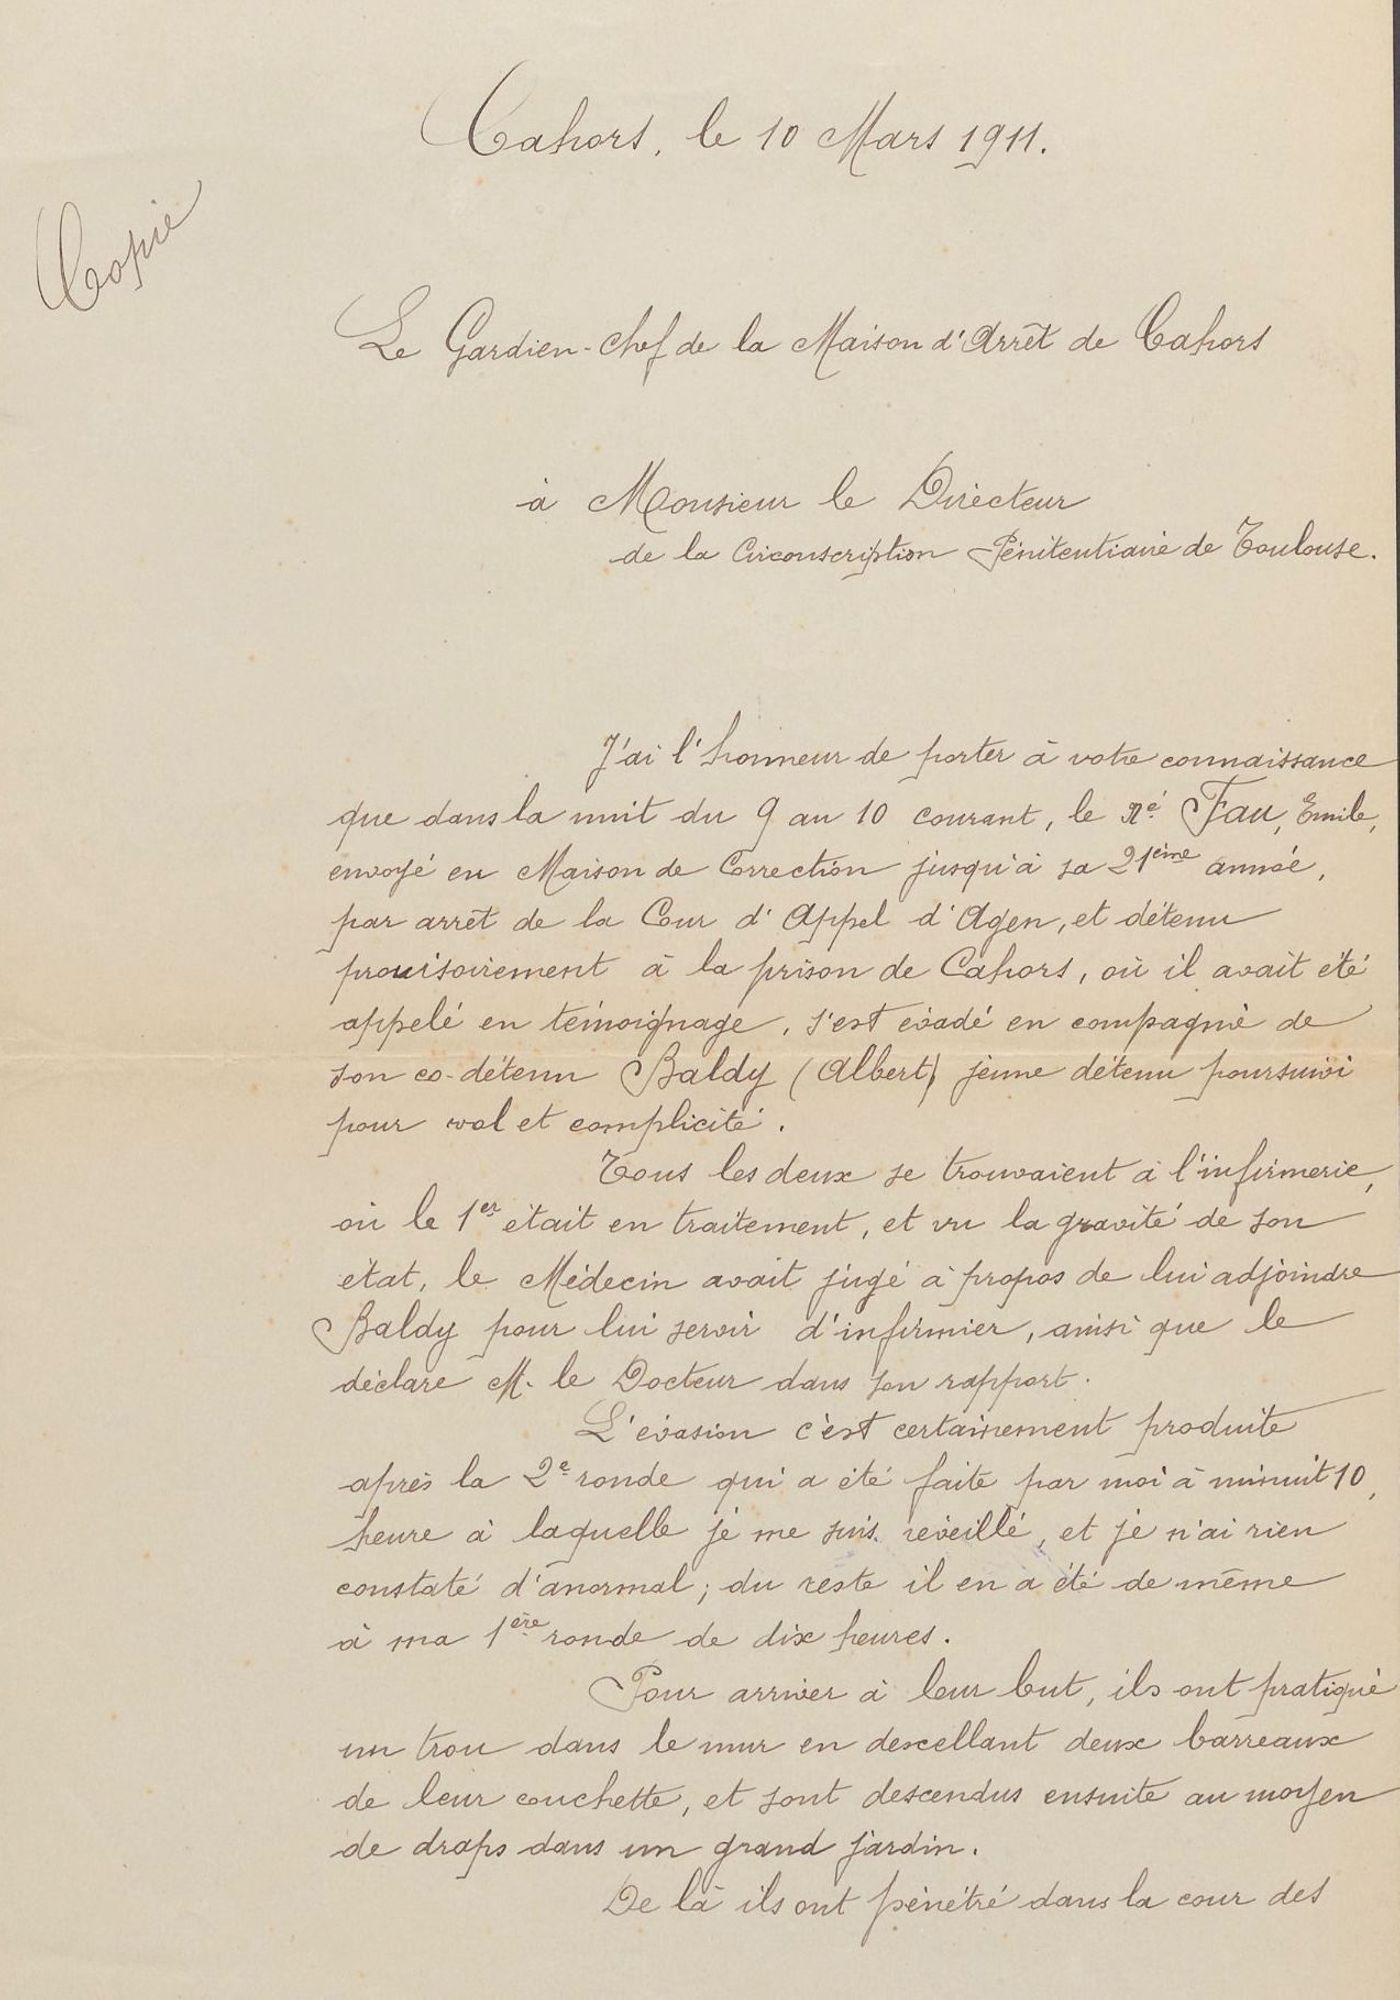 Cahors, le 10 Mars 1911.
Copie
Le Gardien-Chef de la Maison d'Arrêt de Cahors
à Monsieur le Directeur
de la Circonscription Pénitentiaire de Toulouse.
J'ai l'honneur de porter à votre connaissance
que dans la nuit du 9 au 10 courant, le né Fau, Emile,
envoyé en Maison de Correction jusqu'à sa 21ème année,
par arrêt de la Cour d'Appel d'Agen, et détenu
provisoirement à la prison de Cahors, où il avait été
appelé en témoignage, s'est évadé en compagnie de
son co-détenu Baldy (Albert) jeune détenu poursuivi
pour vol et complicité.
Tous les deux se trouvaient à l'infirmerie,
où le 1er était en traitement, et vu la gravité de son
état, le Médecin avait jugé à propos de lui adjoindre
Baldy pour lui servir d'infirmier, ainsi que le
déclare M. le Docteur dans son rapport.
L'évasion c'est certainement produite
après la 2e ronde qui a été faite par moi à minuit 10,
heure à laquelle je me suis réveillé, et je n'ai rien
constaté d'anormal; du reste il en a été de même
à ma 1ère ronde de dix heures.
Pour arriver à leur but, ils ont pratiqué
un trou dans le mur en descellant deux barreaux
de leur couchette, et sont descendus ensuite au moyen
de draps dans un grand jardin.
De là ils ont pénétré dans la cour des